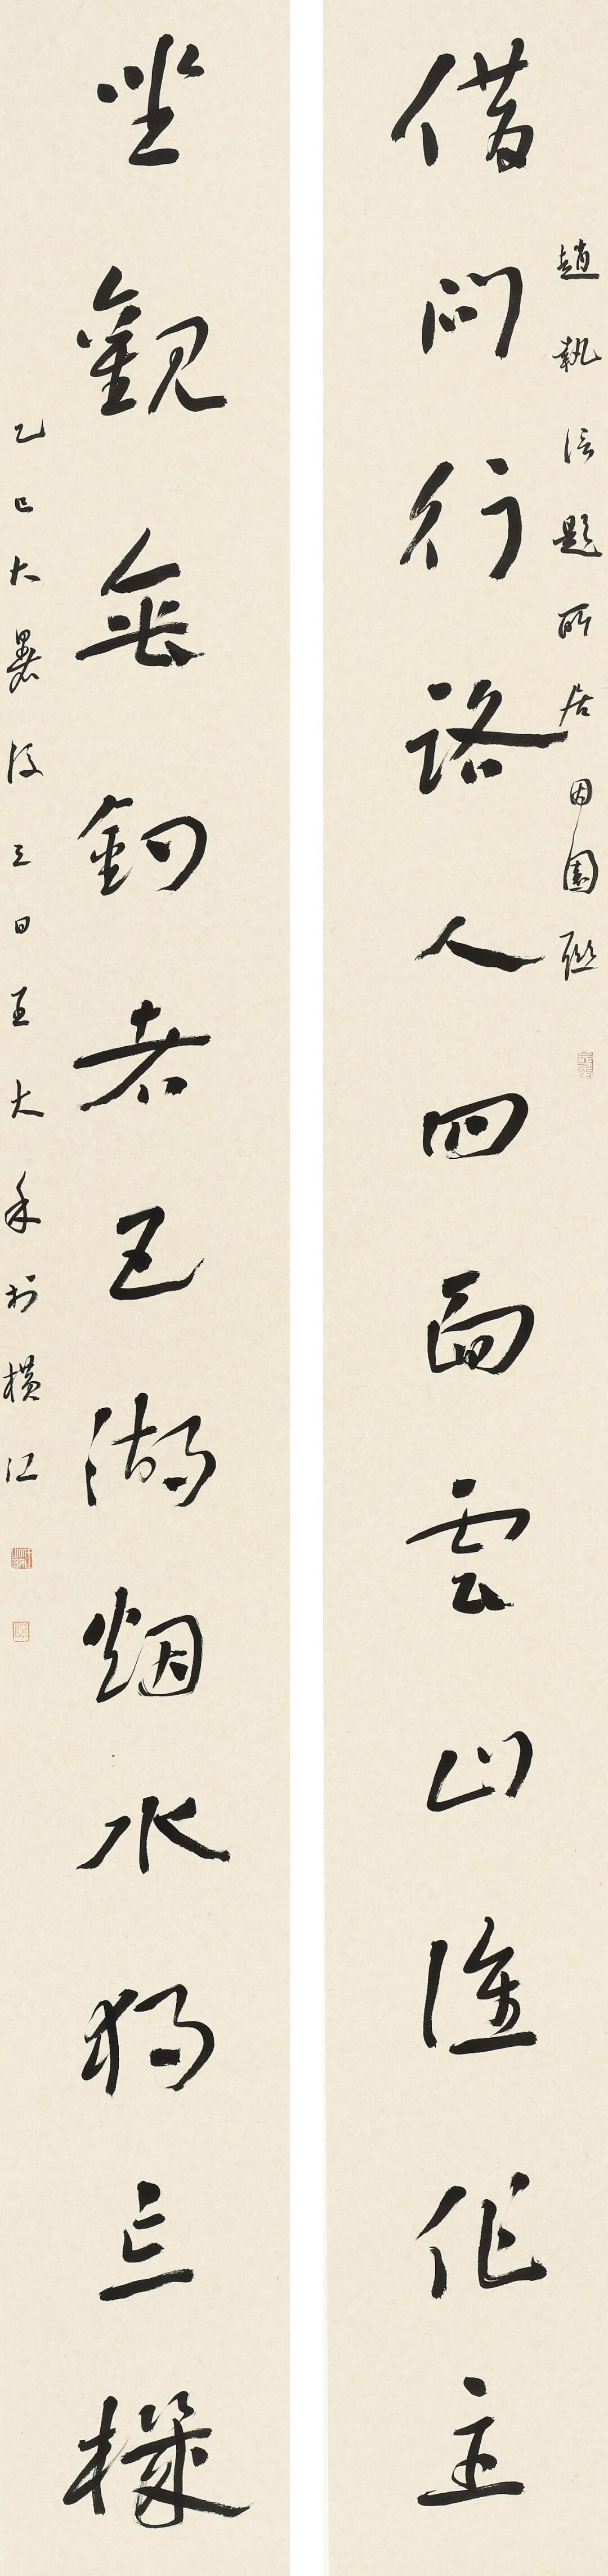 趙執信題所居因園聯
借問行路人四面雲山誰作主
坐觀垂釣者五湖烟水獨忘機
乙巳大暑後三日王大禾於橫江